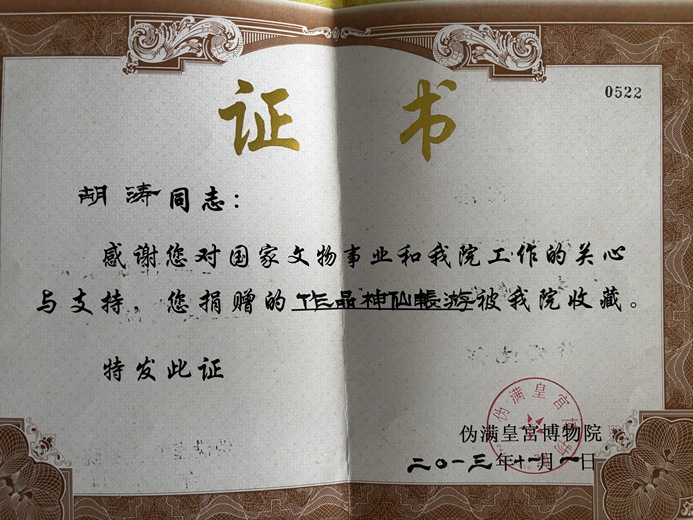 证书
0522
胡涛同志：
感谢您对国家文物事业和我院工作的关心
与支持，您捐赠的作品神仙帐游被我院收藏。
特发此证
伪满皇宫博物院
二〇一三年十一月一日